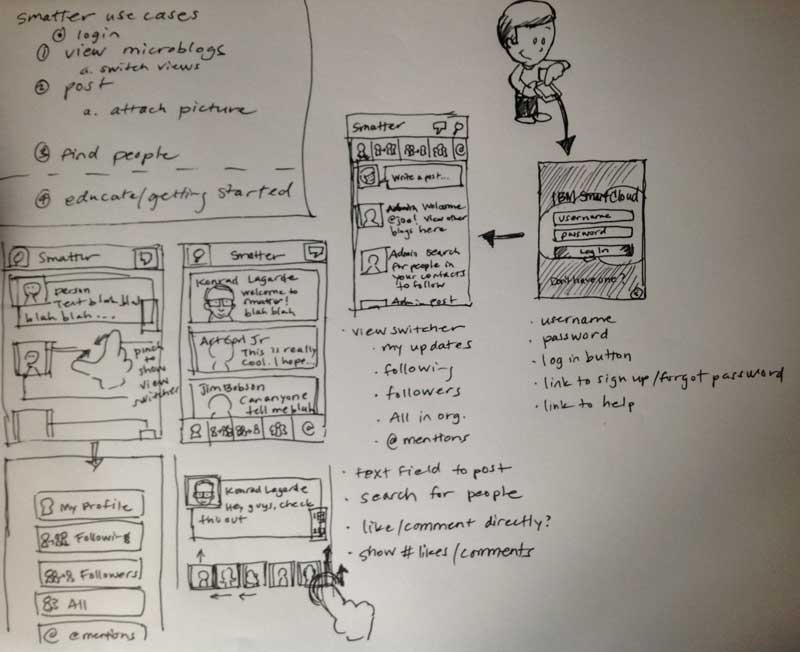 Smatter use cases
0 login
1 view microblogs
a. switch views
2 post
a. attach picture
3 find people
4 educate/getting started
Smatter
person
Text blah blah
blah blah...
pinch
to
show
view
switcher
Smatter
Konrad Lagarde
welcome to
smatter!
blah blah
This is really
cool. I hope...
Jim Bobson
Can anyone
tell me blah
@
Smatter
@
Write a post...
Admin Welcome
@joe! View other
blogs here
Admin Search
for people in
your contacts
to follow
Admin post
IBM SmartCloud
username
password
Log In
Don't have one?
· view switcher
· my updates
· following
· followers
· All in org.
· @mentions
· text field to post
· search for people
· like/comment directly?
· show # likes/comments
· username
· password
· log in button
· link to sign up/forgot password
· link to help
My Profile
Following
Followers
All
@ @mentions
Konrad Lagarde
Hey, guys, check
this out